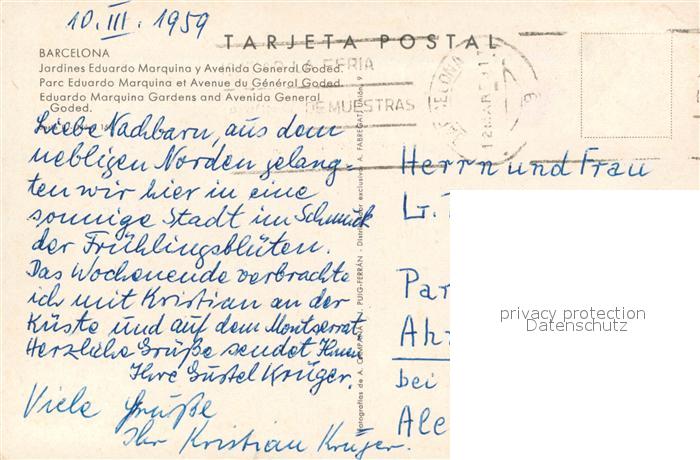 10. III. 1959
TARJETA POSTAL
BARCELONA
Jardines Eduardo Marquina y Avenida General Goded.
Parc Eduardo Marquina et Avenue du Général Goded.
Eduardo Marquina Gardens and Avenida General
Goded.
FERIA
DE MUESTRAS
BARCELONA
Liebe Nachbarn, aus dem
nebligen Norden gelang-
ten wir hier in eine
sonnige Stadt im Schmuck
der Frühlingsblüten.
Das Wochenende verbrachte
ich mit Kristian an der
Küste und auf dem Montserrat.
Herzliche Grüße sendet Ihnen
Ihre Gustel Krüger.
Viele Grüße
Ihr Kristian Krüger.
Fotografías de A. CAMPAÑÁ y J. PUIG-FERRÁN - Distribuidor exclusivo A. FABREGAT, Unión, 9
Herrn und Frau
Par
Ah
bei
Ale
privacy protection
Datenschutz